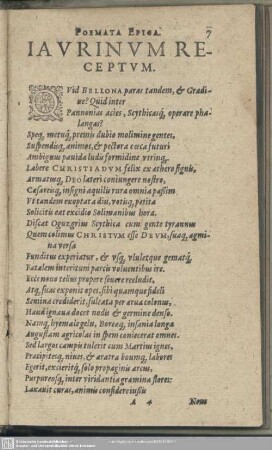 POEMATA EPICA. 7
IAVRINVM RE-
CEPTVM.
QVid BELLONA paras tandem, & Gradi-
ue? Quid inter
Pannonias acies, Scythicasq́, operare pha-
langas?
Speq́, metuq́, premis dubio molimine gentes,
Suspendisq́, animos, & pectora cæca futuri
Ambiguum pauida ludis formidine vtrinq́,
Labere CHRISTIADVM felix ex æthere signis,
Armatusq́, DEO lateri coniungere nostro,
Cæsareisq́, insigni aquilis rura omnia passim
Vt tandem exoptata diu, votisq́, petita
Solicitis eat excidio Solimanibus hora.
Discat Oguzgrius Scythica cum gente tyrannus
Quem colimus CHRISTVM esse DEVM, suaq́, agmi-
na versa
Funditus experiatur, & vsq́, vlulatque gematq́,
Fatalem interitum parcis voluentibus ire.
Ecce nouo tellus propere senere recludit,
Atq́, suas exponit opes, sibi quamque fideli
Semina crediderit, sulcata per arua colonus,
Haud ignaua docet nodis & germine denso.
Namq́, hyemalo gelu, Boreæq́, insania longa
Augustam agricolis in spem coniecerat omnes.
Sed largos campis tulerit cum Martius ignes,
Præcipitesq́, niues, & aratra boumq́, labores
Egerit, excieritq́, solo propaginis arcus,
Purpureosq́, inter viridantia gramina flores:
Laxauit curas, animis confidere iussis
A 4 Nous